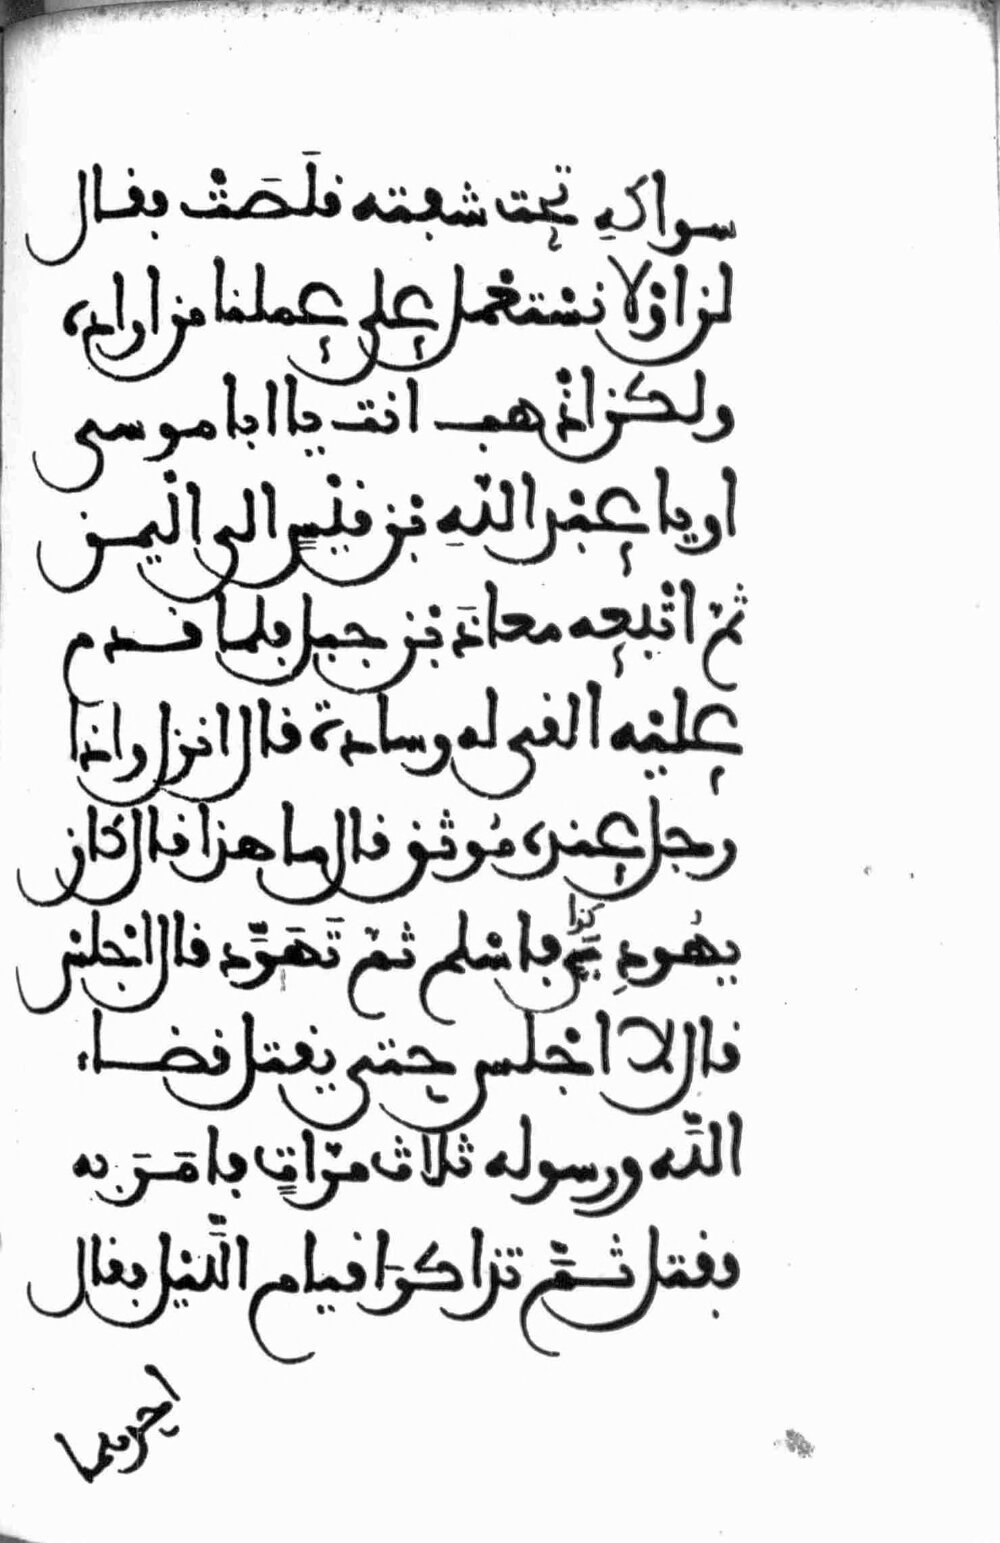 سواكه تحت شفته قلصت فقال
لن او لا نستعمل على عملنا من اراده
ولكن اذهب انت يا ابا موسى
او يا عبد الله بن قيس الى اليمن
ثم اتبعه معاذ بن جبل فلما قدم
عليه القى له وسادة قال انزل واذا
رجل عنده موثق قال ما هذا قال كان
يهوديا كذا فاسلم ثم تهود قال اجلس
قال لا اجلس حتى يقتل قضاء
الله ورسوله ثلاث مرات فامر به
فقتل ثم تذاكرا قيام الليل فقال
احدهما